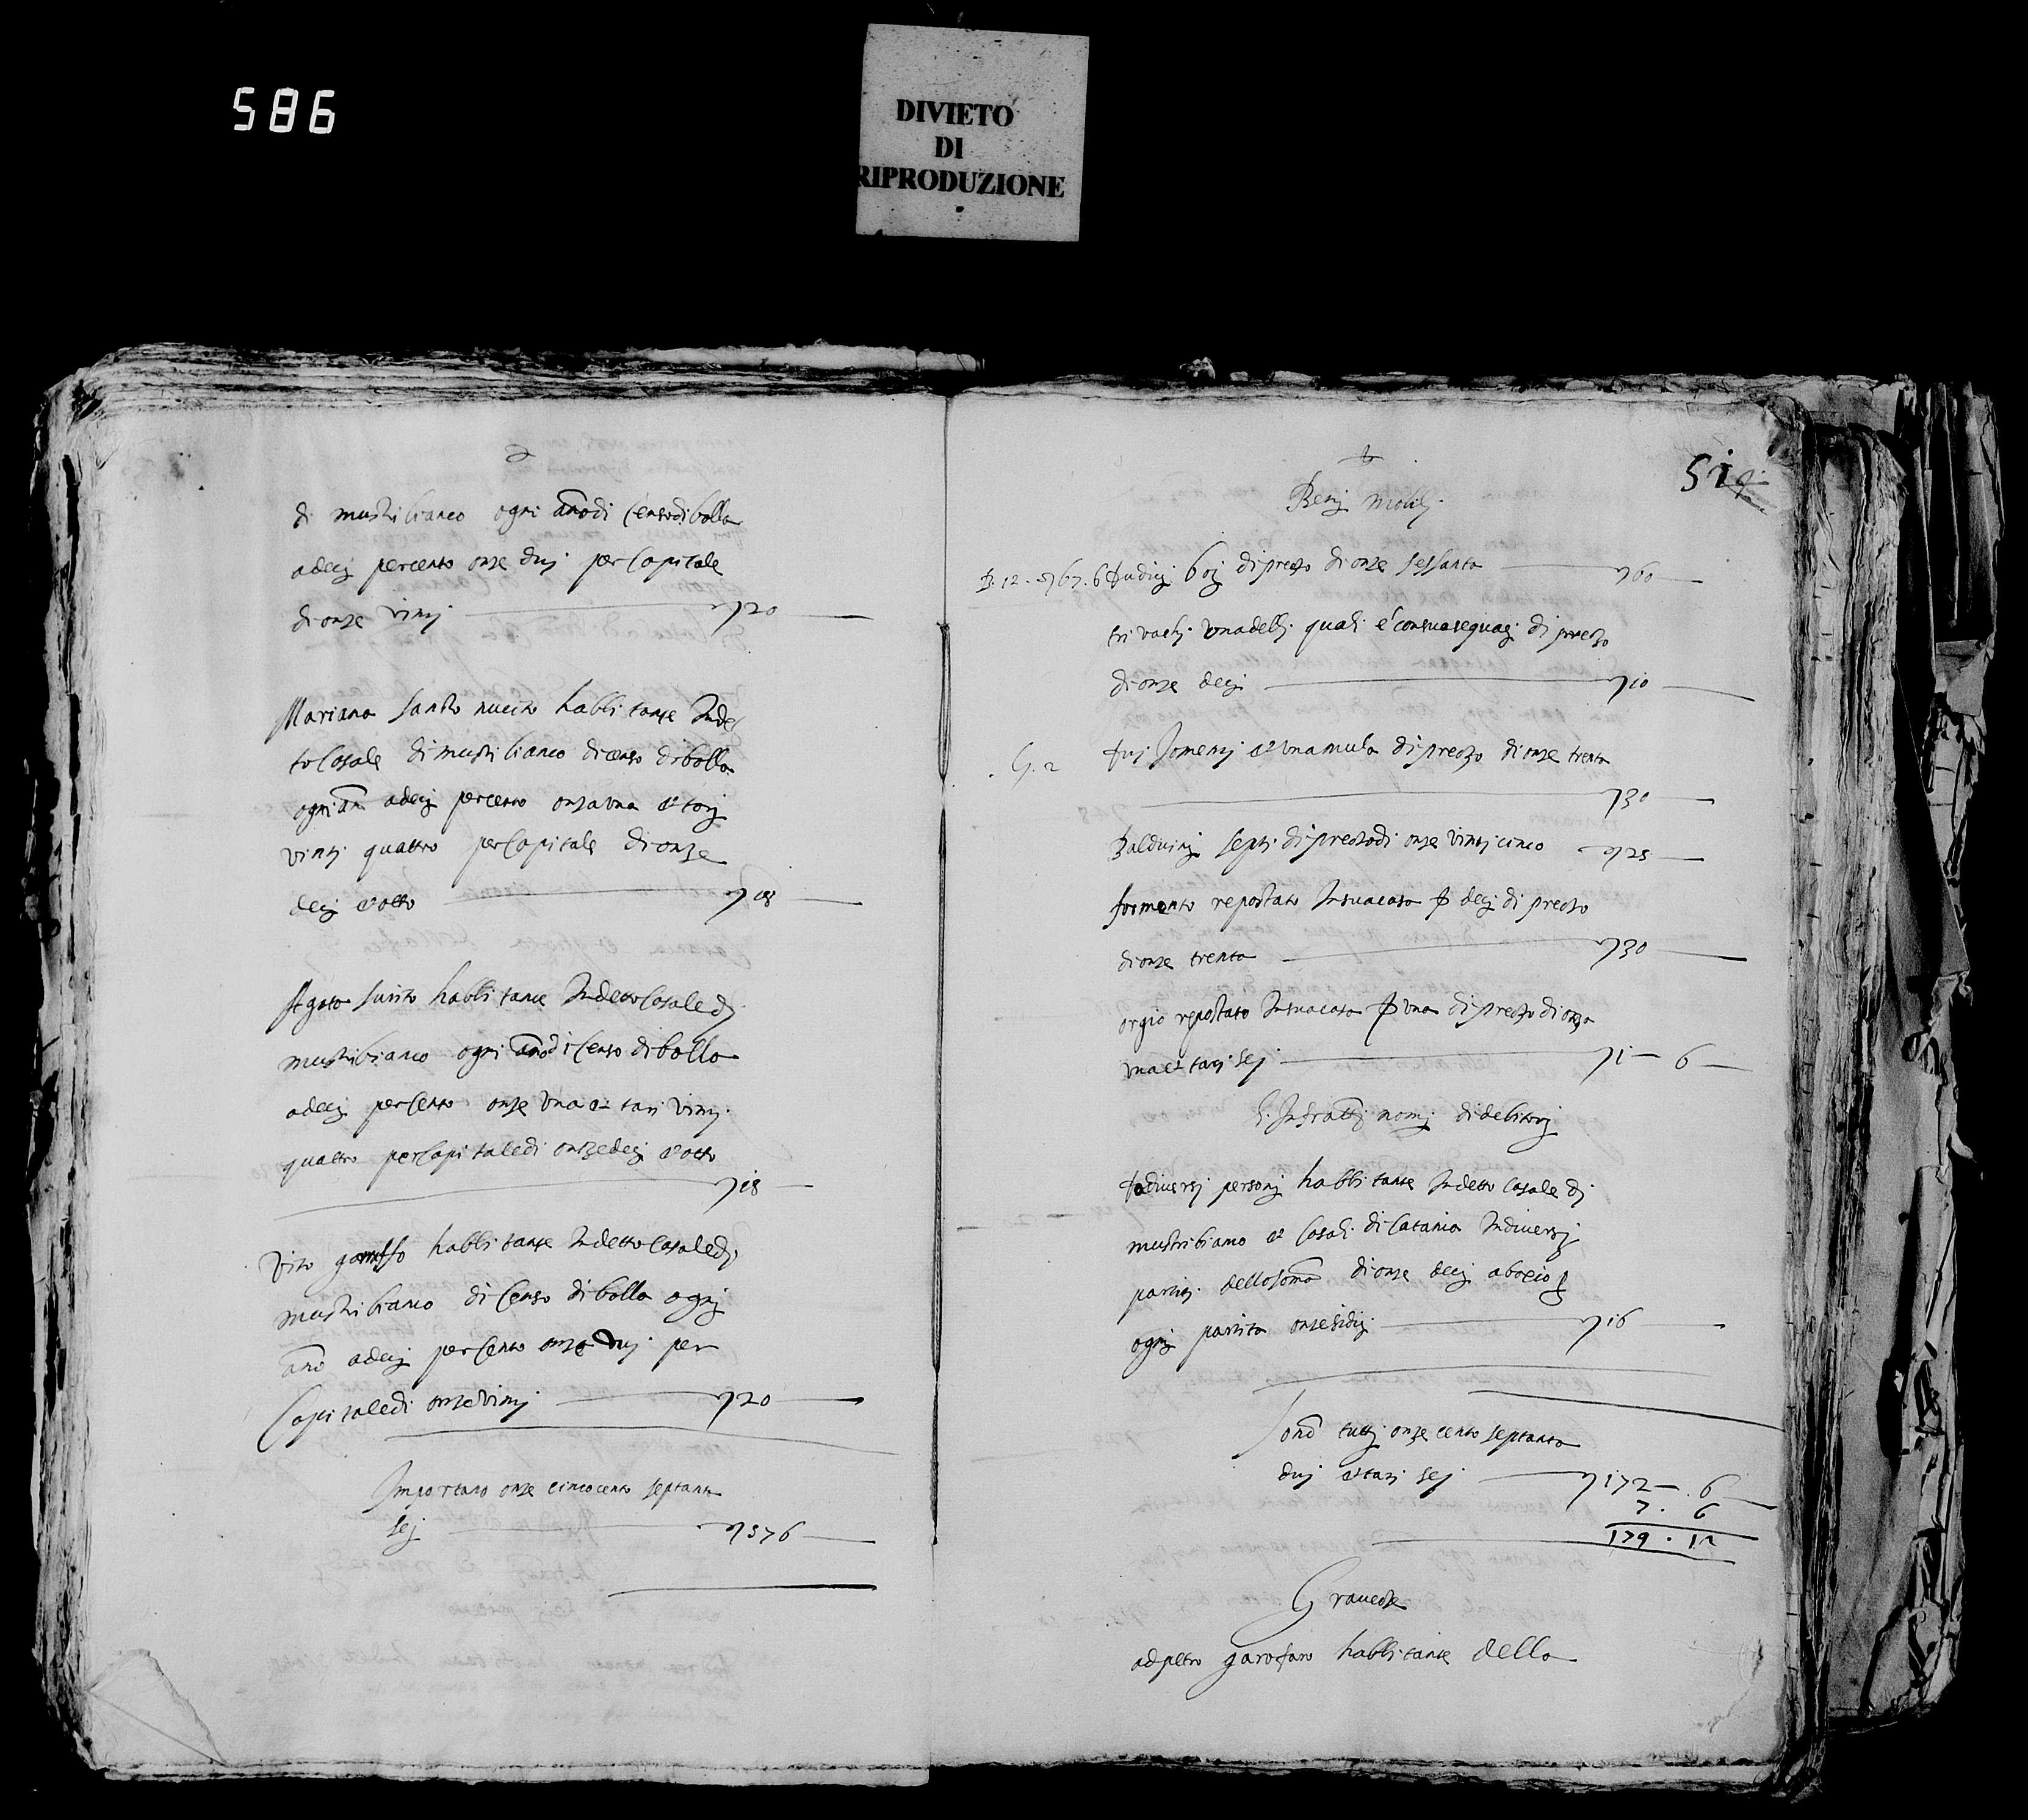 586
DIVIETO
DI
RIPRODUZIONE
di mustribianco ogni año di censo di bolla
a decj percento onze duj per capitale
di onze vintj 20
Mariano Santo nucito habbitante In det
to Casale di mustribianco di censo di bolla
ogni añ a decj percento onza una et tarj
vintj quattro per capitale di onze
decj et otto 18
Agata habbitante In detto Casale dj
mustribianco ogni año di censo di bolla
a decj per cento onze una et tarj vintj
quattro per capitale di onze decj et otto
18
Vito habbitante In detto Casale dj
mustribianco di censo di bolla ognj
año a decj per cento onze duj per
Capitale di onze vintj 20
Importano onze cincocento septanta
sej 576
51
Benj mobilj
B. 12. 67. 6 Dudicj boj di prezo di onze sessanta 60
tri vachj una dellj quali é con sua seguacj di prezzo
di onze decj 10
G. 2 Duj Jomentj et una mula di prezzo di onze trenta
30
Balduinj septj di prezzo di onze vintj cinco 25
formento repostato In sua casa decj di prezzo
di onze trenta 30
orgio repostato In sua casa una di prezzo di onza
una et tarj sej 1 6
L'Infratti nomj di debitorj
Da diversj personj habbitante In detto Casale dj
mustribianco et Casali di Catania In diversj
partitj della somã di onze decj a baxio
ognj partita onze sidicj 16
sonõ tuttj onze cento septanta
duj et tarj sej 172 6
7. 6
179. 12
Gravezze
ad petro garofaro habbitante della